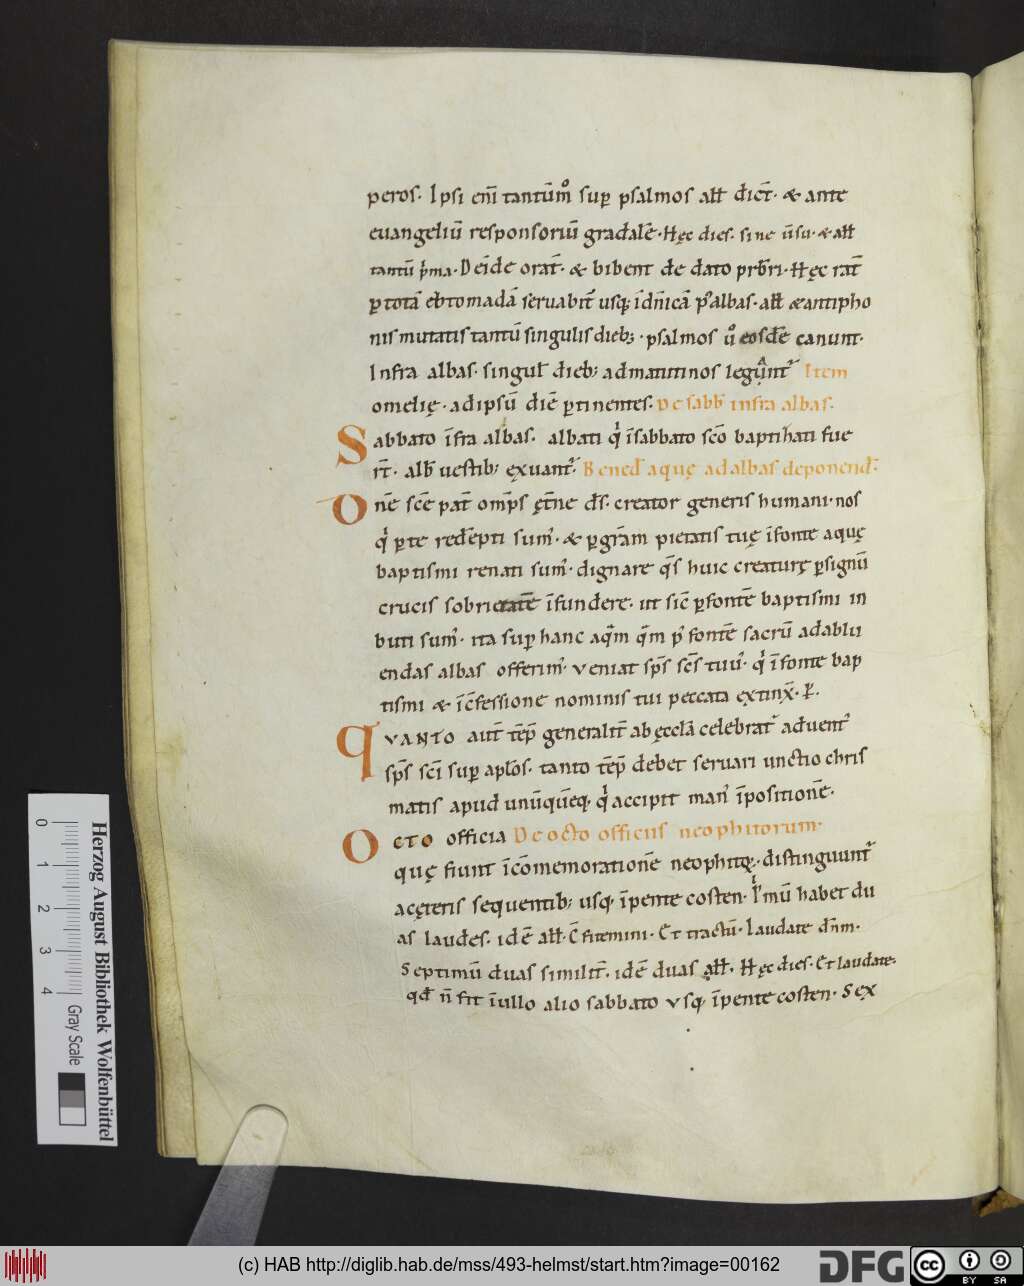 peros. Ipsi eni̅ tantu̅m̊ sup psalmos all̅ dic̅t. & ante
euangeliu̅ responsoriu̅ gradale̅. Hęc dies. sine u̅su. & all̅
tantu̅ p̍ma. Dei̅de orat̅. & bibent de dato prb̅ri. Hęc rat̅
ꝑ tota̅ ebtomada̅ seruabit̅ usq; i̅ dn̅ica̅ p᷒ albas. all̅ & antipho
nis mutatis tantu̅ singulis dieb;. psalmos ů eosde̅ canunt.
Infra albas. singul̅ dieb; ad matutinos legunt᷒ Item
omelię. ad ipsu̅ die̅ ꝑtinentes. De sabb̅ infra albas.
Sabbato i̅fra albas. albati q̍ i̅ sabbato sc̅o baptizati fue
rt̅. alb̅ uestib; exuant᷒. Bened̅ aquę ad albas deponend̅.
One̅ sc̅e pat̅ omp̅s ęt̅ne ds̅. creator generis humani. nos
q̍ ꝑ te rede̅pti sum᷒. & ꝑ gra̅m pietatis tuę i̅ fonte aquę
baptismi renati sum᷒. dignare qs̅ huic creaturę ꝑ signu̅
crucis sobrietate̅ i̅fundere. ut sic̅ ꝑ fonte̅ baptismi in
buti sum᷒. ita sup hanc aq̅m q̅m p᷒ fonte̅ sacru̅ ad ablu
endas albas offerim᷒. veniat sp̅s sc̅s tuu᷒. q̍ i̅ fonte bap
tismi & i̅ c̅fessione nominis tui peccata extinx̅. P̅.
QVANTO aut̅ te̅p̅ generalit̅ ab ęccl̅a celebrat᷒ aduent᷒
sp̅s sc̅i sup apl̅os. tanto te̅p̅ debet seruari unctio chris
matis apud unu̅que̅q;. q̍ accipit man᷒ i̅positione̅.
OCTO officia De octo officiis neophitorum.
quę fiunt i̅ co̅memoratione̅ neophitoꝝ. distinguunt᷒
a cęteris sequentib; usq; i̅ pentecosten. P̍mu̅ habet du
as laudes. ide̅ all̅. C̅fitemini. Et tractu̅. Laudate dn̅m.
Septimu̅ duas similit̅. ide̅ duas all̅. Hęc dies. Et laudate.
qd̅ n̅ fit i̅ ullo alio sabbato vsq; i̅ pentecosten. Sex
Herzog August Bibliothek Wolfenbüttel
0 1 2 3 4
Gray Scale
(c) HAB http://diglib.hab.de/mss/493-helmst/start.htm?image=00162
DFG
cc BY SA